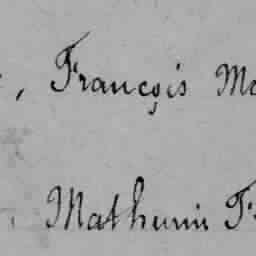 , François Mo
Mathurin F